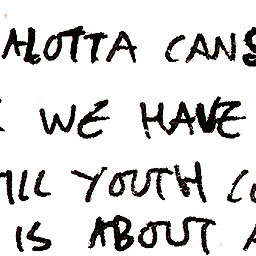 ALOTTA CANS
WE HAVE
YOUTH
IS ABOUT